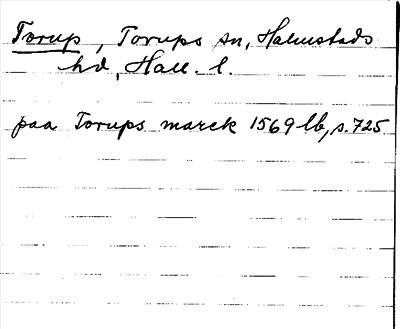 Torup, Torups sn, Halmstads
hd, Hall. l.
paa Torups marck 1569 lb, s. 725